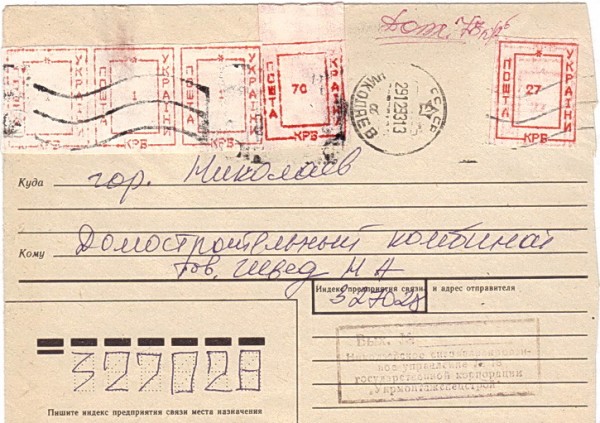 Дот. 73 крб
ПОШТА УКРАЇНИ КРБ
ПОШТА 1 УКРАЇНИ КРБ
ПОШТА УКРАЇНИ КРБ
ПОШТА 70 УКРАЇНИ КРБ
НИКОЛАЕВ
ПОШТА 27 УКРАЇНИ КРБ
Куда гор. Николаев
Кому Домостроительный комбинат
тов. Швед Н А
Индекс предприятия связи и адрес отправителя
327028
ВЫХ. №
государственной корпорации
"Укрмонтажспецстрой"
327028
Пишите индекс предприятия связи места назначения